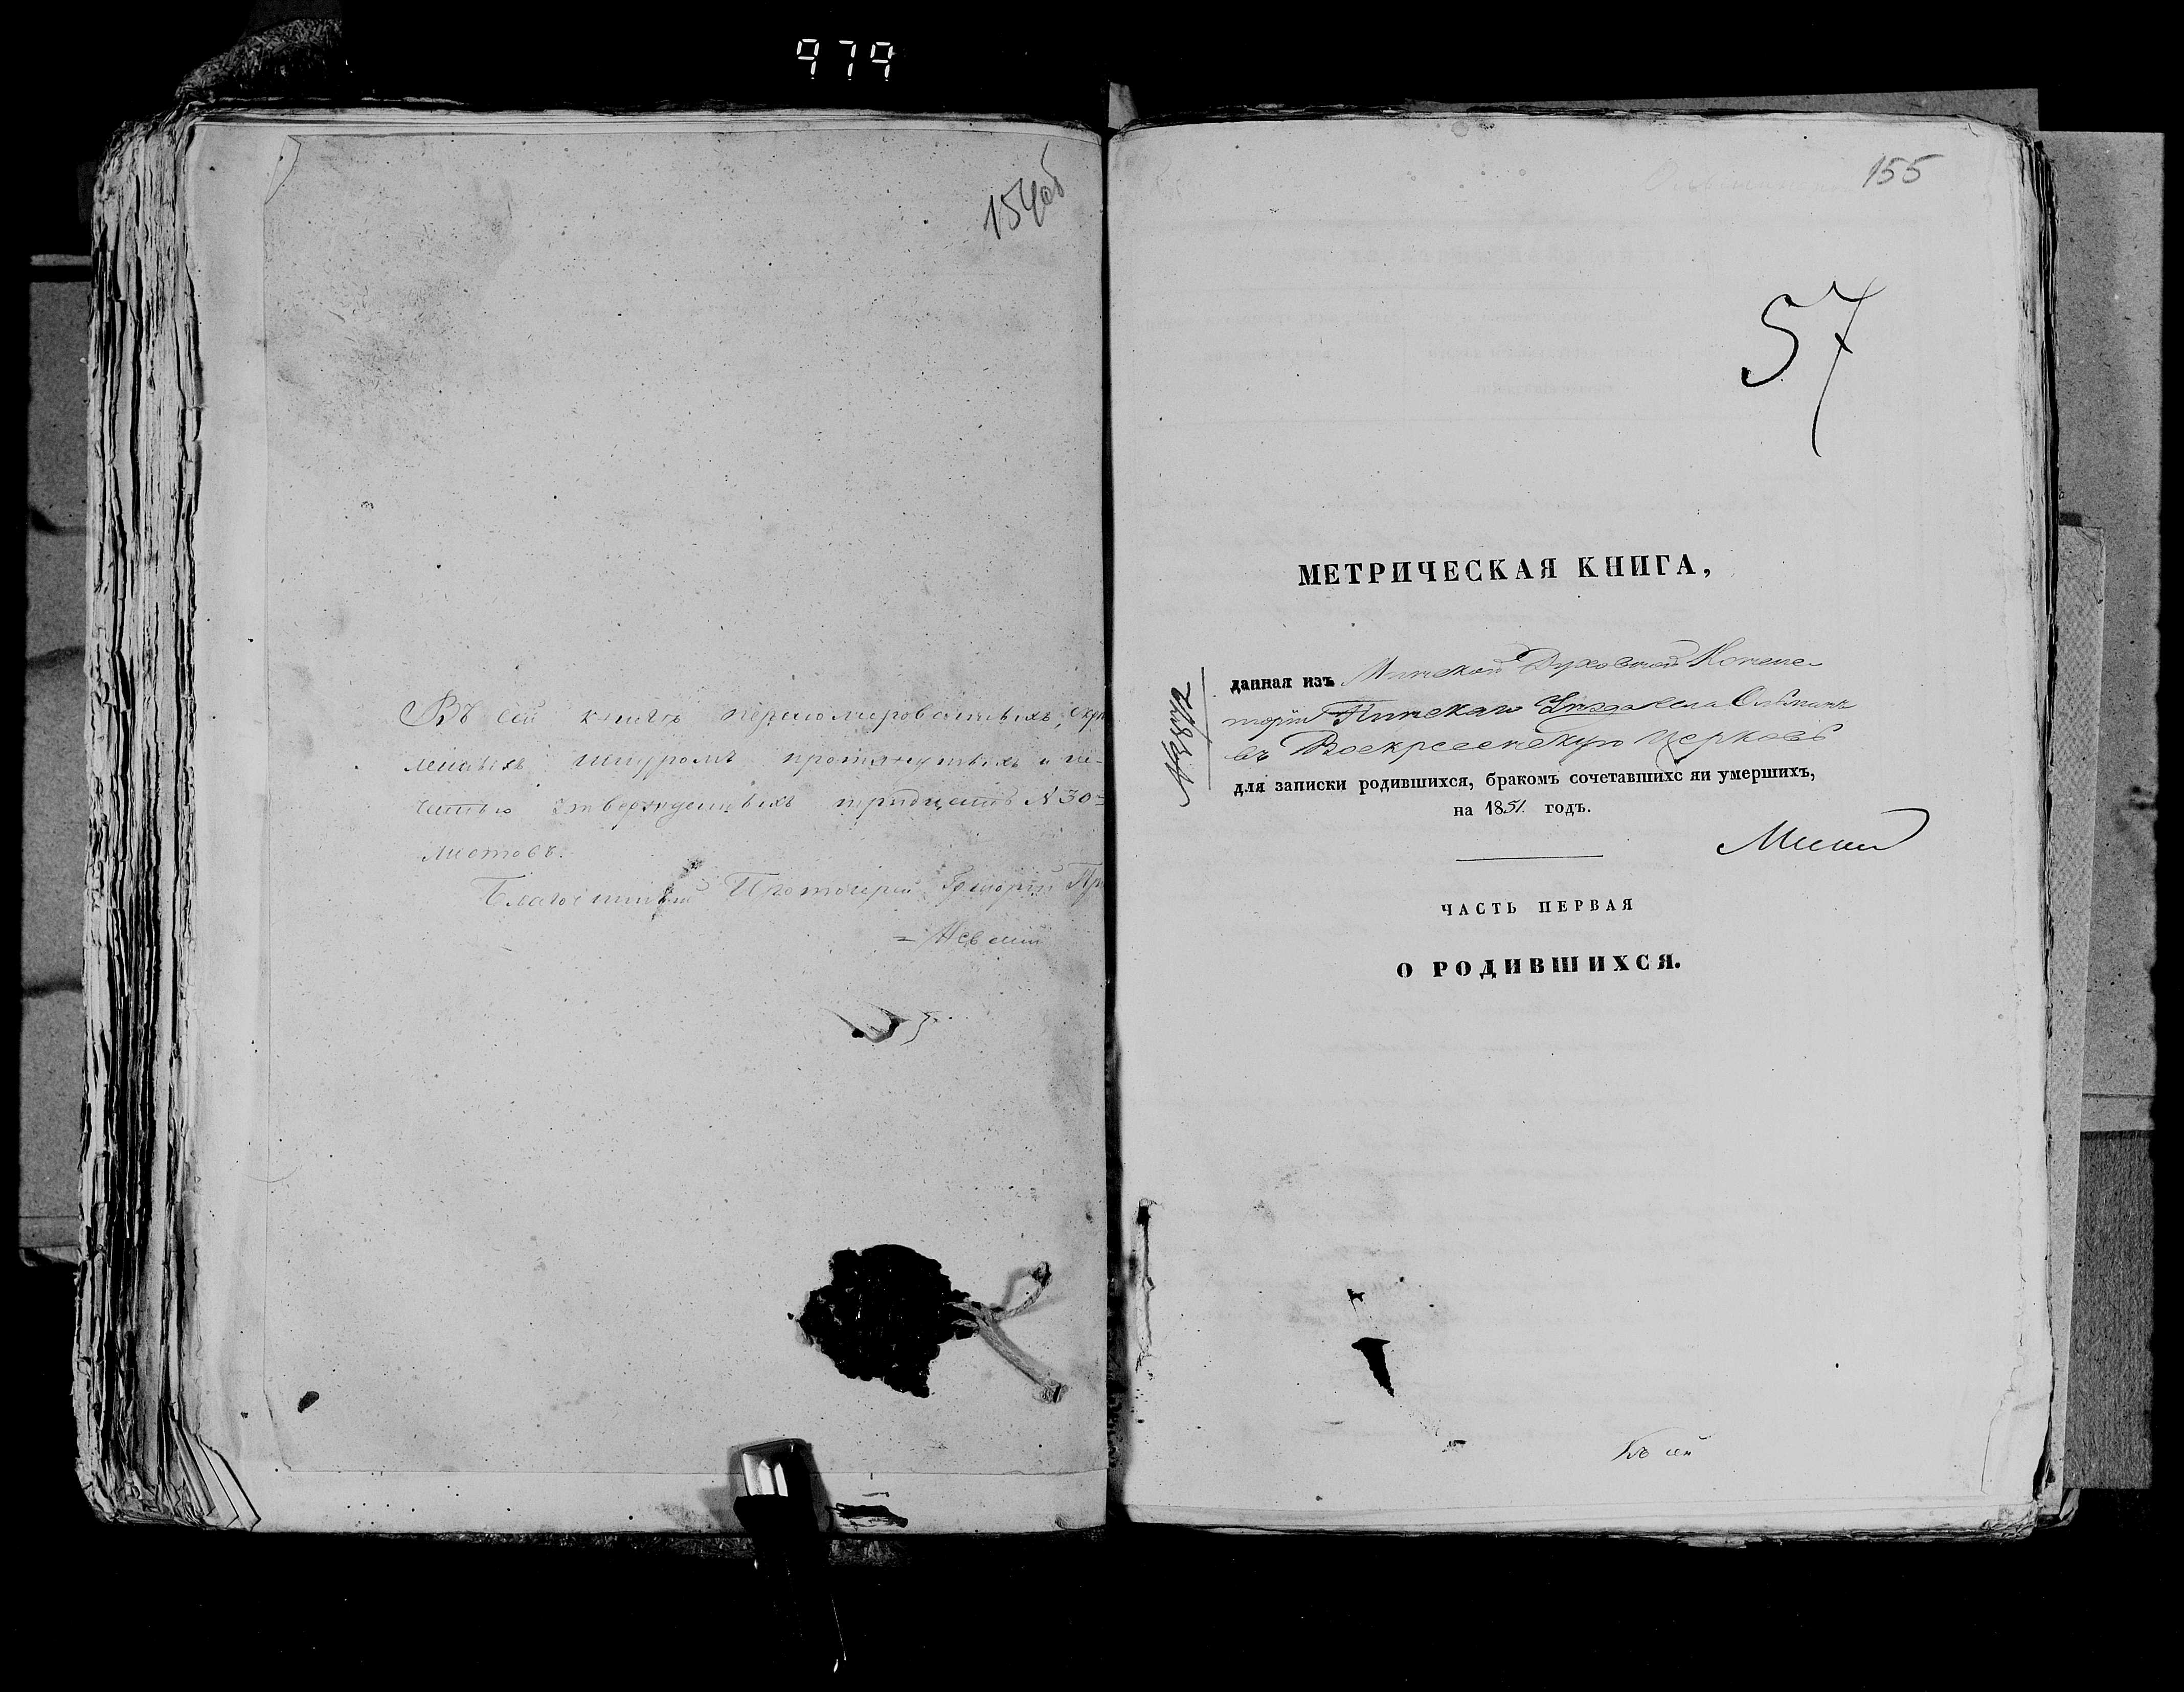 979
154об
Въ сей книгѣ перенумерованныхъ, скрѣ
пленныхъ шнуромъ протянутыхъ и пе-
чатью утвержденныхъ тридцать N 30=
листовъ.
Благочинный Протоіерей Григорій
155
57
МЕТРИЧЕСКАЯ КНИГА,
данная изъ Минской Духовной Консис-
торіи Пинскаго Уѣзда села
въ Воскресенскую церковь
для записки родившихся, бракомъ сочетавшихс яи умершихъ,
на 1851 годъ.
ЧАСТЬ ПЕРВАЯ
О РОДИВШИХСЯ.